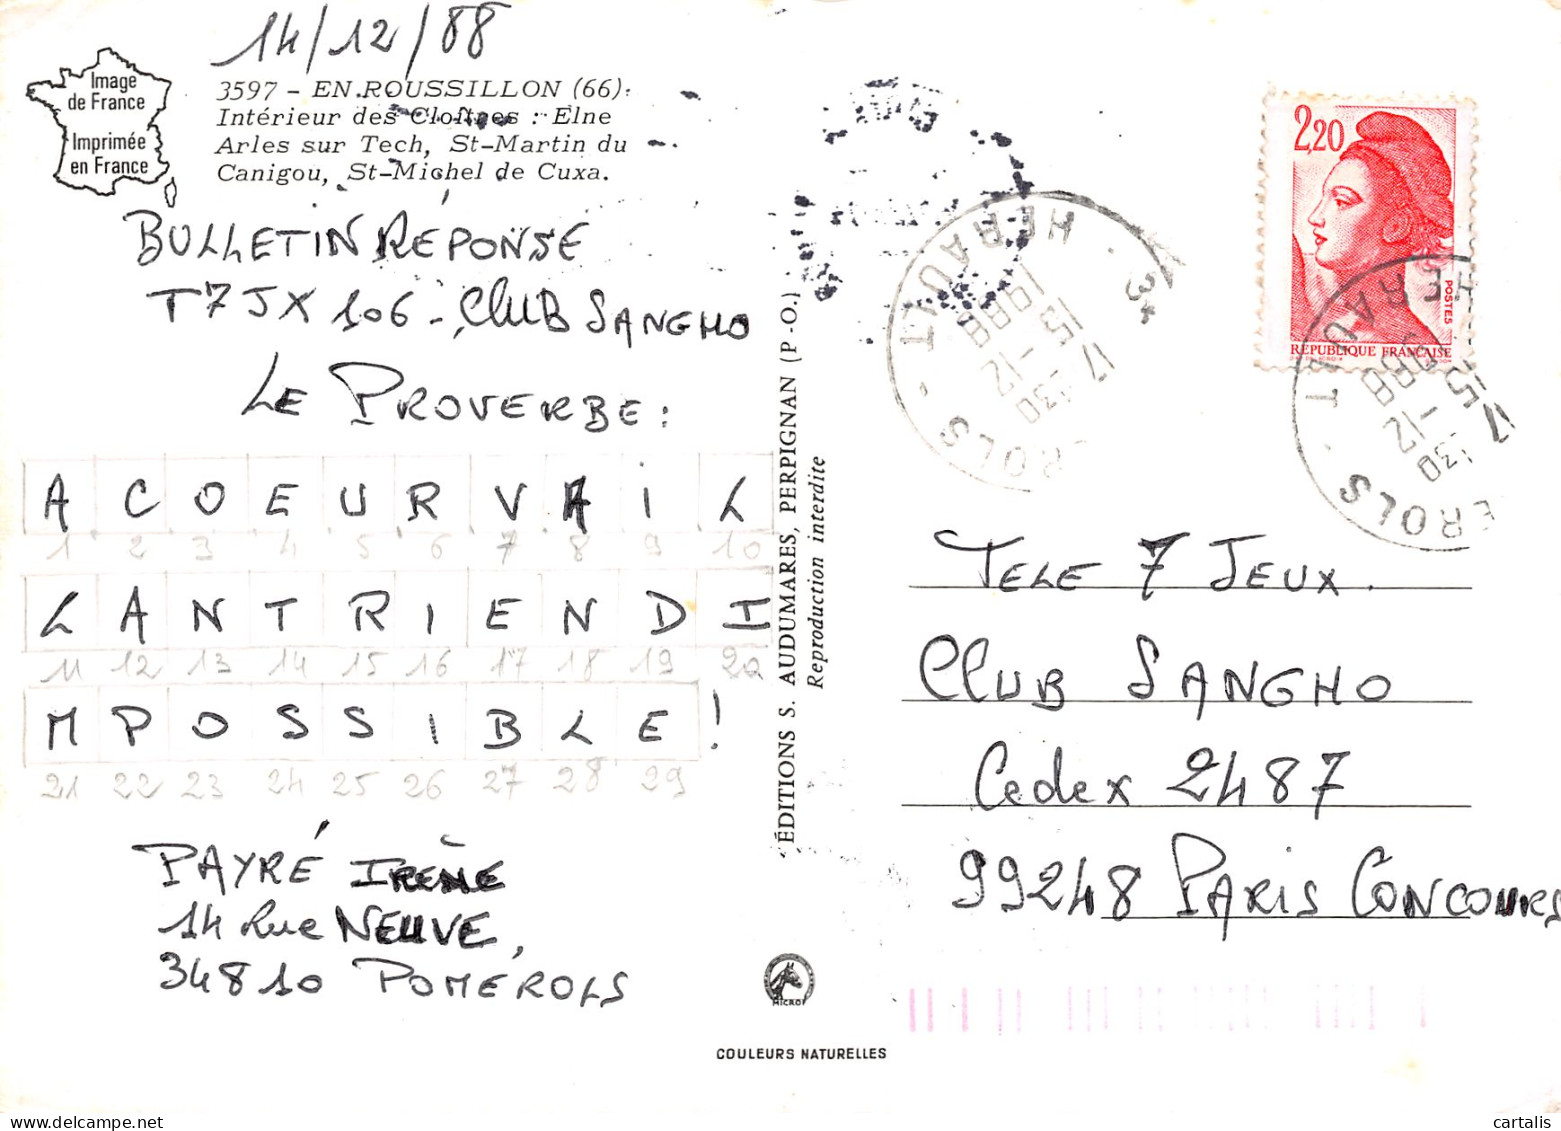 14/12/88
Image
de France
Imprimée
en France
3597 - EN ROUSSILLON (66):
Intérieur des Cloîtres : Elne
Arles sur Tech, St-Martin du
Canigou, St-Michel de Cuxa.
BULLETIN RÉPONSE
T7JX 106 - CLUB SANGHO
LE PROVERBE :
A C O E U R V A I L
1 2 3 4 5 6 7 8 9 10
L A N T R I E N D I
11 12 13 14 15 16 17 18 19 20
M P O S S I B L E !
21 22 23 24 25 26 27 28 29
PAYRÉ IRÈNE
14 Rue NEUVE,
34810 POMÉROLS
ÉDITIONS S. AUDUMARES, PERPIGNAN (P.-O.)
Reproduction interdite
MICRO
COULEURS NATURELLES
2,20
POSTES
RÉPUBLIQUE FRANÇAISE
34
HERAULT
EROLS
17 30
15 -12
1988
HERAULT
EROLS
17 30
15 -12
988
TELE 7 JEUX.
CLUB SANGHO
Cedex 2487
99248 PARIS CONCOURS
cartalis